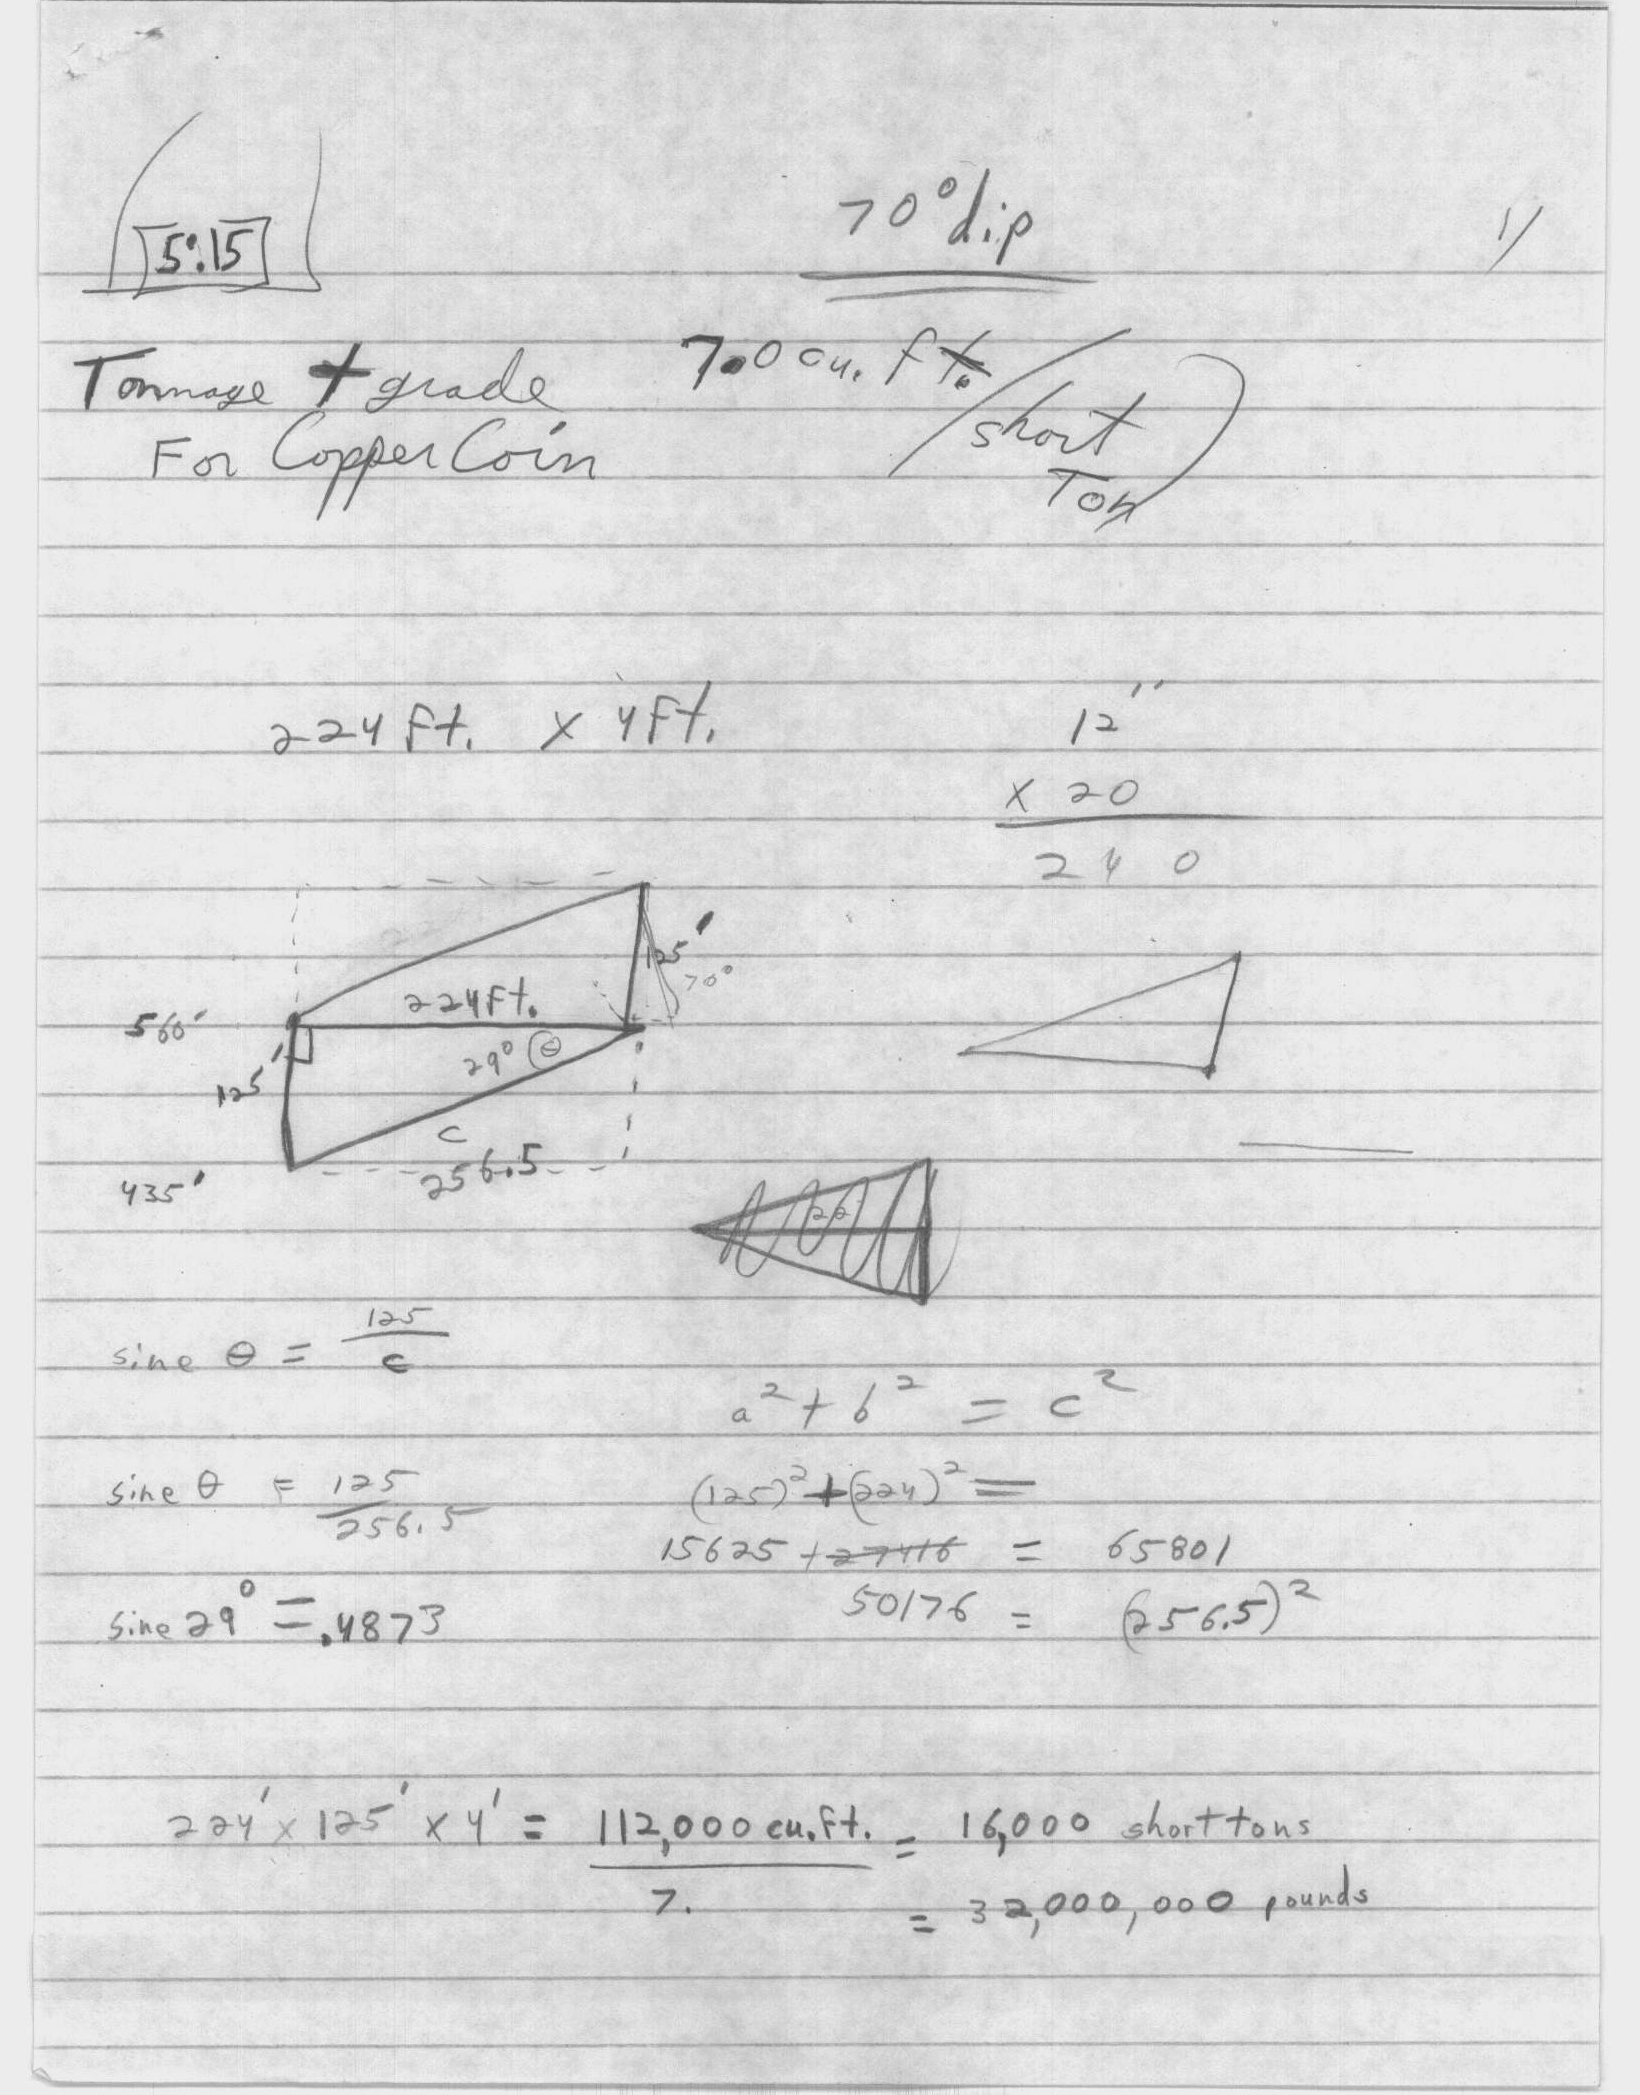 5:15
70° dip
1/
Tonnage + grade
For Copper Coin
7.0 cu. ft. / short Ton
224 Ft. x 4 Ft.
12"
x 20
240
125'
70°
224 Ft.
560'
29° θ
125'
c
256.5
435'
22
sine θ = 125/c
a² + b² = c²
sine θ = 125/256.5
(125)² + (224)² =
15625 + 27416 = 65801
50176 = (256.5)²
sine 29° = .4873
224' x 125' x 4' = 112,000 cu. ft. / 7. = 16,000 short tons
= 32,000,000 pounds